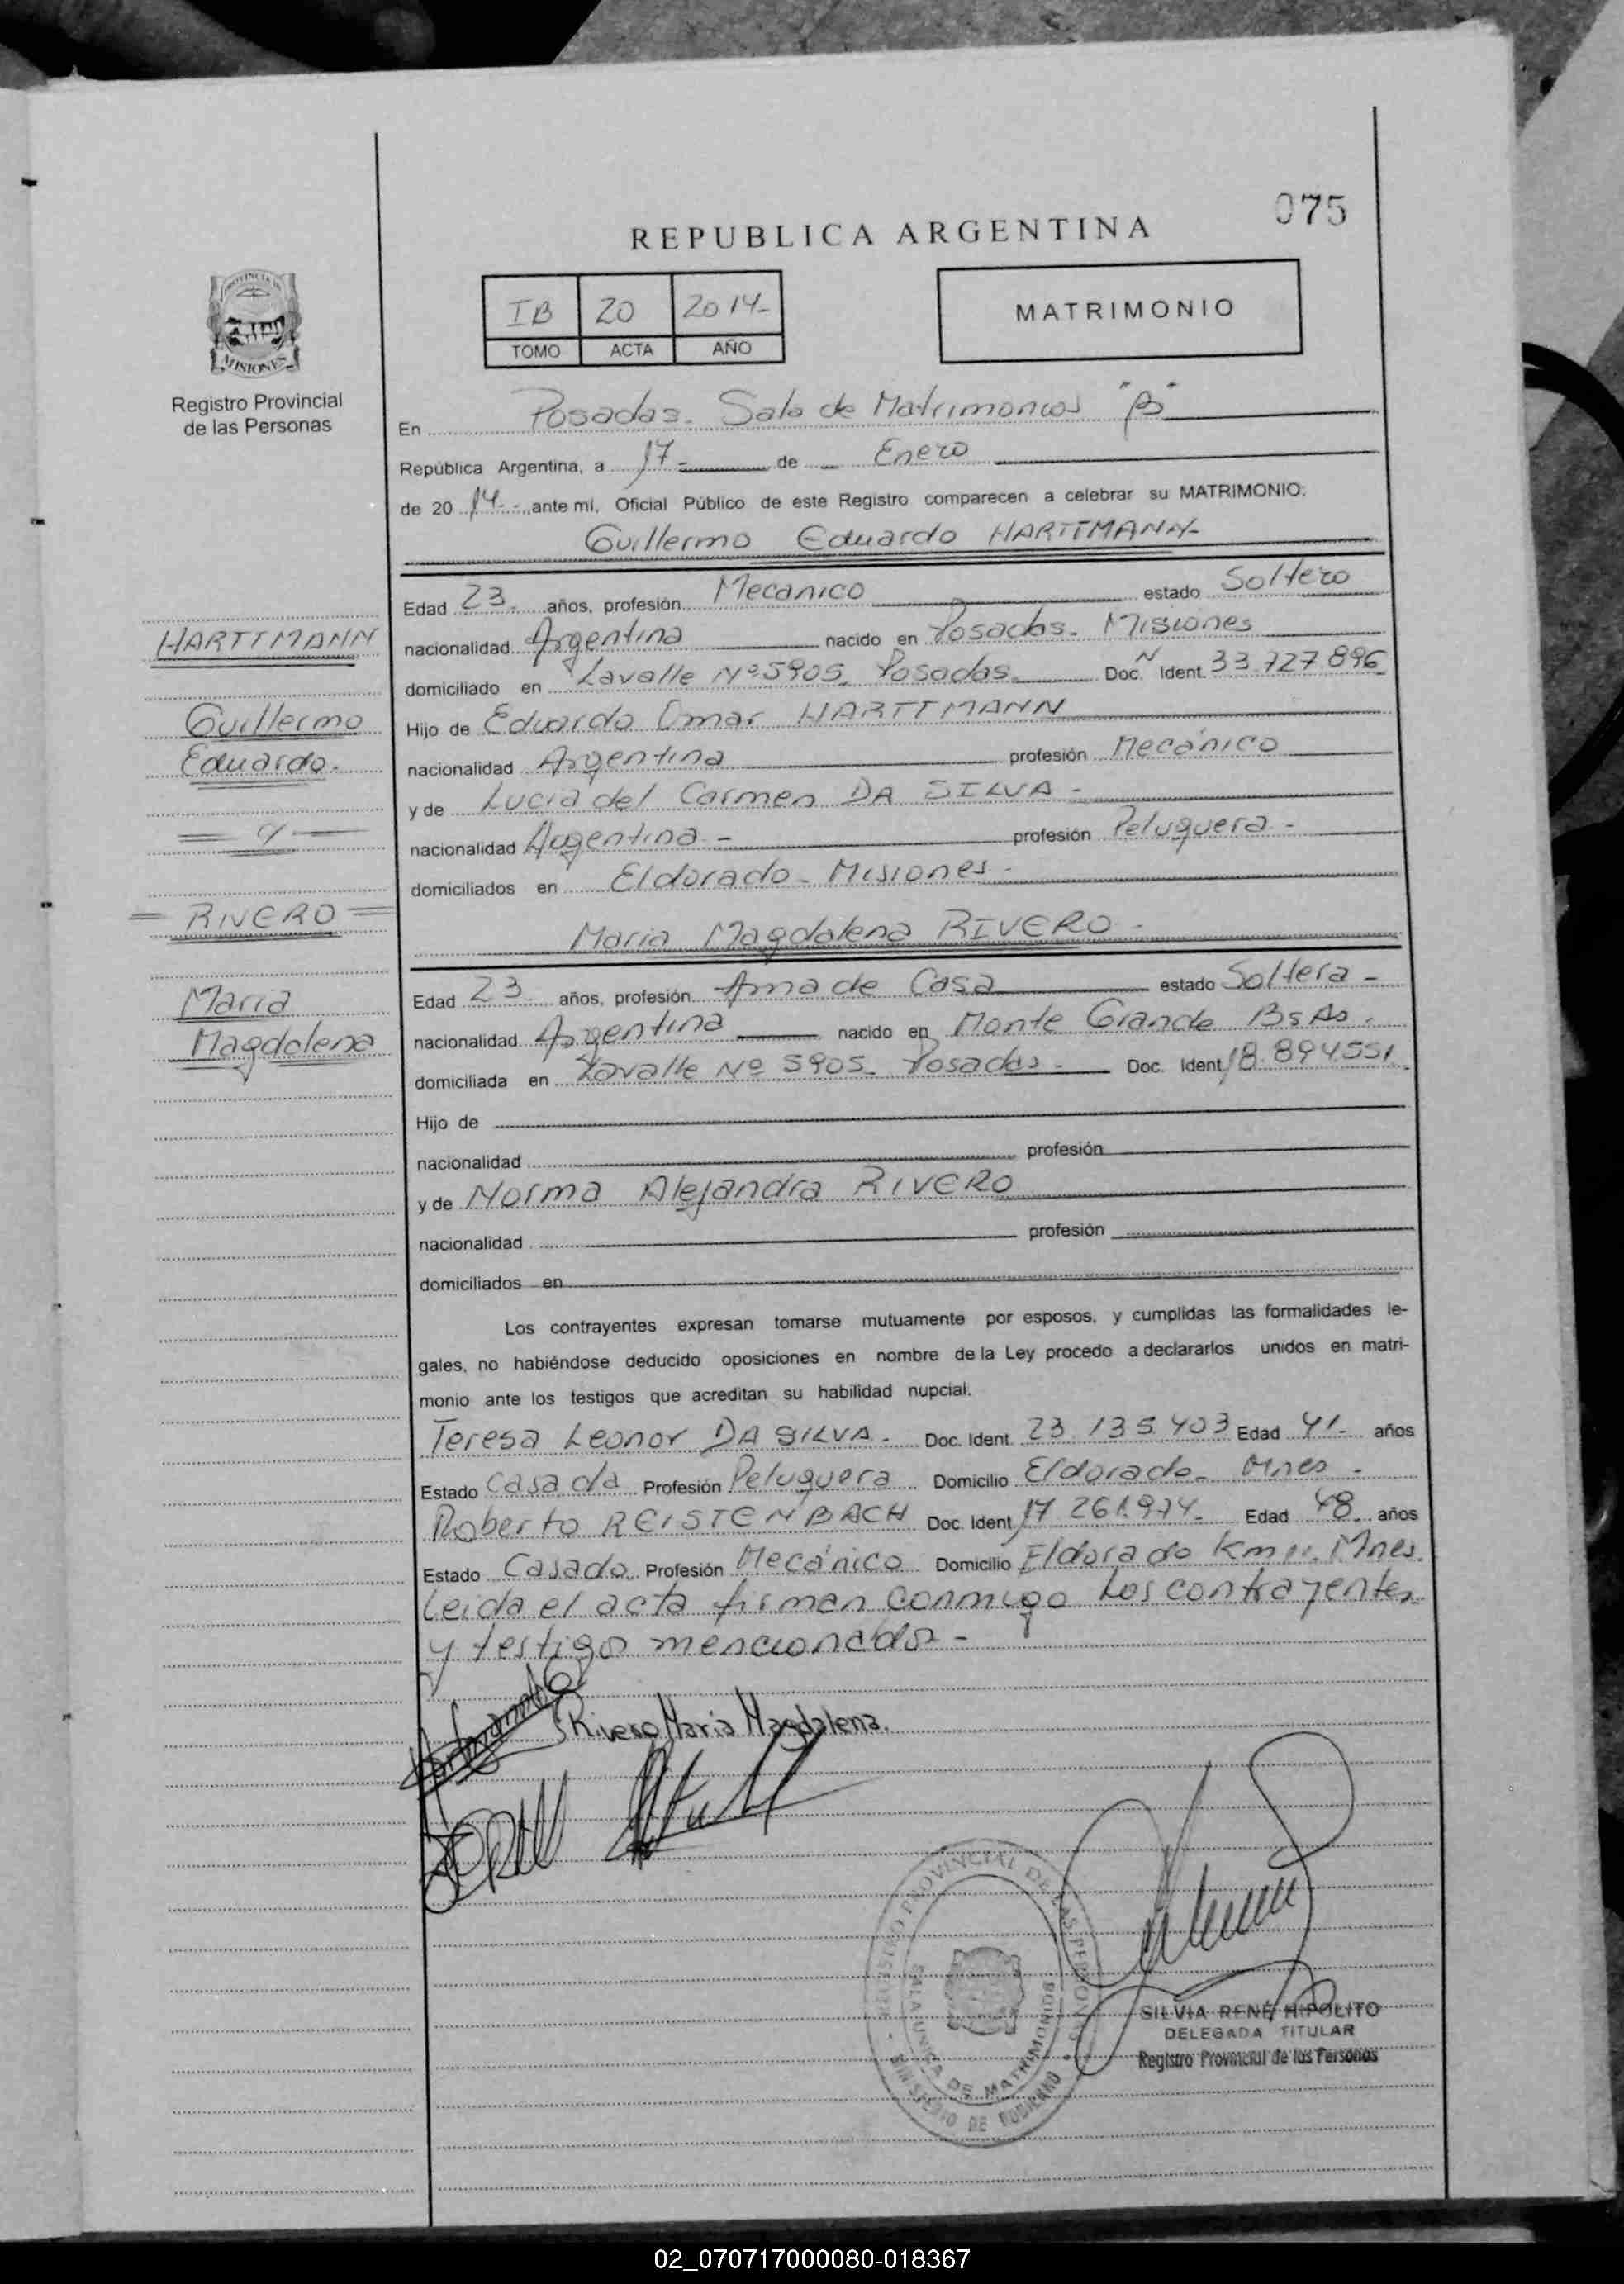 075
REPUBLICA ARGENTINA
IB 20 2014-
TOMO ACTA AÑO
MATRIMONIO
PROVINCIA DE
MISIONES
Registro Provincial
de las Personas
En Posadas. Sala de Matrimonios "B"
República Argentina, a 17- de Enero
de 2014- ante mi, Oficial Público de este Registro comparecen a celebrar su MATRIMONIO:
Guillermo Eduardo HARTTMANN-
Edad 23- años, profesión Mecánico estado Soltero
HARTTMANN
nacionalidad Argentina nacido en Posadas- Misiones
domiciliado en Lavalle Nº 5905 Posadas Doc. N Ident. 33.727.896
Guillermo
Hijo de Eduardo Omar HARTTMANN
Eduardo.
nacionalidad Argentina profesión Mecánico
y de Lucia del Carmen DA SILVA -
y
nacionalidad Argentina - profesión Peluquera -
domiciliados en Eldorado - Misiones -
RIVERO
Maria Magdalena RIVERO -
Edad 23 años, profesión Ama de Casa estado Soltera -
Maria
nacionalidad Argentina nacido en Monte Grande Bs As.
Magdalena
domiciliada en Lavalle Nº 5905- Posadas - Doc. Ident. 18.894.551
Hijo de
nacionalidad profesión
y de Norma Alejandra RIVERO
nacionalidad profesión
domiciliados en
Los contrayentes expresan tomarse mutuamente por esposos, y cumplidas las formalidades le-
gales, no habiéndose deducido oposiciones en nombre de la Ley procedo a declararlos unidos en matri-
monio ante los testigos que acreditan su habilidad nupcial.
Teresa Leonor DA SILVA - Doc. Ident. 23.135.403 Edad 41- años
Estado Casada Profesión Peluquera Domicilio Eldorado- Mnes -
Roberto REISTENBACH Doc. Ident. 17.261.974- Edad 48 años
Estado Casado Profesión Mecánico Domicilio Eldorado Km 11. Mnes.
Leida el acta firman conmigo los contrayentes
y testigos mencionados -
Rivero Maria Magdalena.
REGISTRO PROVINCIAL DE LAS PERSONAS
SALA UNICA DE MATRIMONIOS
MINISTERIO DE GOBIERNO
SILVIA RENÉ HIPOLITO
DELEGADA TITULAR
Registro Provincial de las Personas
02_070717000080-018367